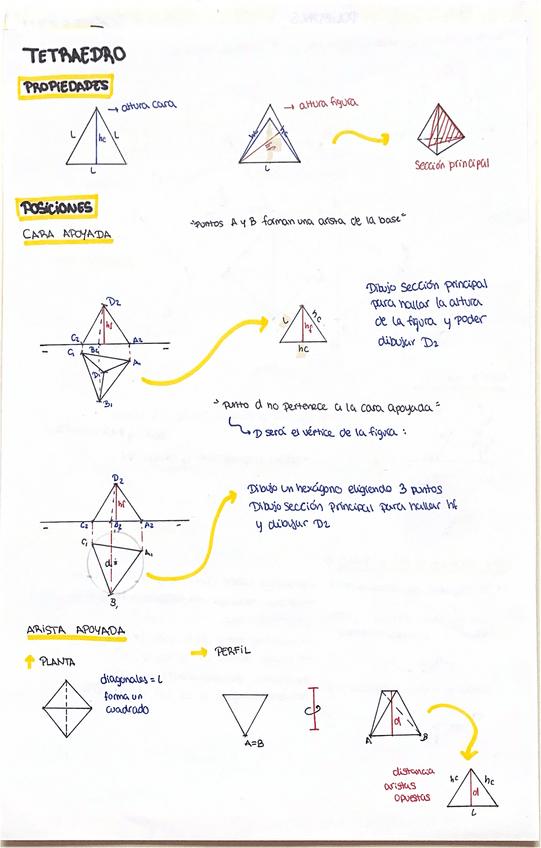 TETRAEDRO
PROPIEDADES
→ altura cara
L
hc
L
L
→ altura figura
hc
hc
hf
L
sección principal
POSICIONES
CARA APOYADA
"Puntos A y B forman una arista de la base"
D2
hf
C2
B2
A2
C1
A1
D1
B1
L
hf
hc
hc
Dibujo sección principal
para hallar la altura
de la figura y poder
dibujar D2
"Punto d no pertenece a la cara apoyada"
D será el vértice de la figura:
D2
hf
C2
B2
A2
C1
A1
d
B1
Dibujo un hexágono eligiendo 3 puntos
Dibujo sección principal para hallar hf
y dibujar D2
ARISTA APOYADA
↑ PLANTA
diagonales = L
forma un
cuadrado
→ PERFIL
A=B
d
A
B
distancia
aristas
opuestas
hc
hc
d
L